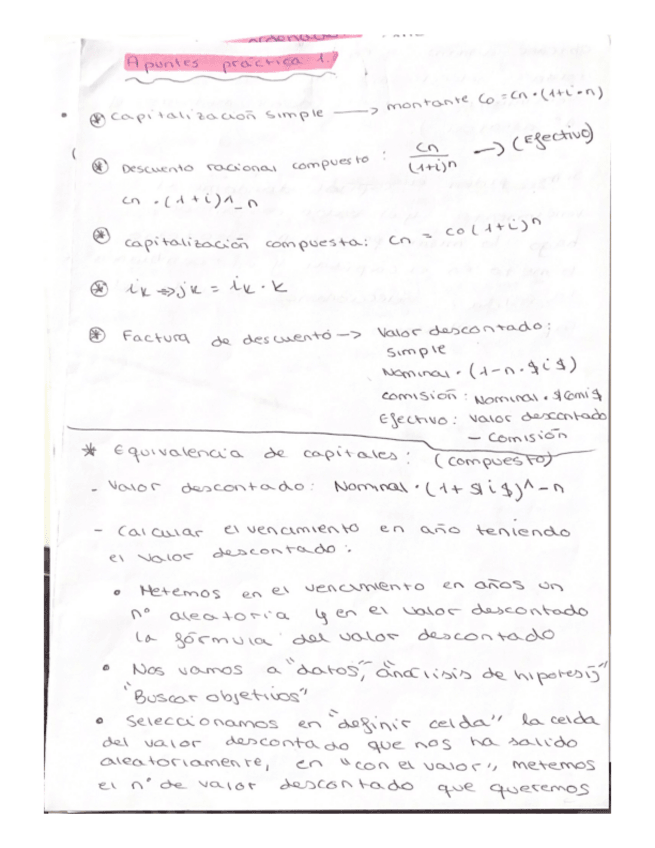 Apuntes práctica 1.
⊛ Capitalización simple ⟶ montante Co = Cn • (1+i•n)
⊛ Descuento racional compuesto : Cn/(1+i)n → (Efectivo)
Cn • (1+i)^-n
⊛ capitalización compuesta: Cn = Co(1+i)n
⊛ ik ⇒ jk = ik • k
⊛ Factura de descuento → Valor descontado:
simple
Nominal • (1-n•$i$)
comisión : Nominal • $comi$
Efectivo : Valor descontado
- Comisión
* Equivalencia de capitales : (compuesto)
- Valor descontado: Nominal • (1+$i$)^-n
- Calcular el vencimiento en año teniendo
el valor descontado :
• Metemos en el vencimiento en años un
nº aleatorio y en el valor descontado
la fórmula del valor descontado
• Nos vamos a "datos", "análisis de hipotesis"
"Buscar objetivos"
• Seleccionamos en "definir celda" la celda
del valor descontado que nos ha salido
aleatoriamente, en "con el valor", metemos
el nº de valor descontado que queremos